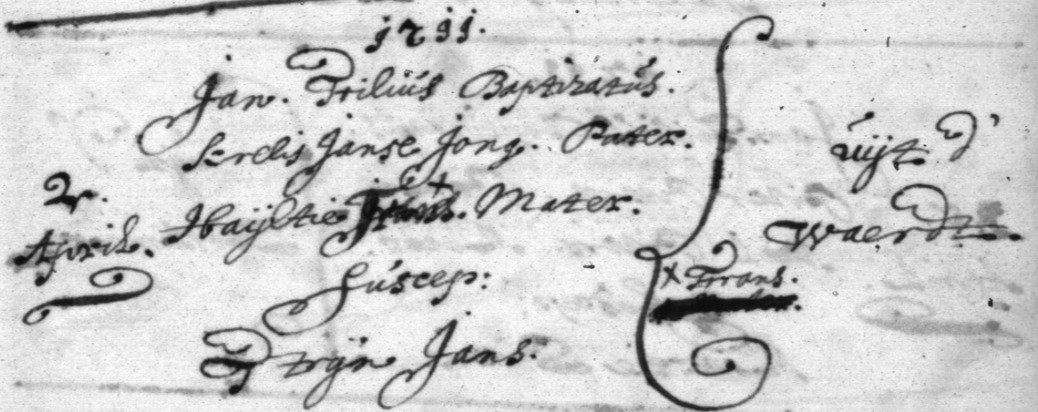 1711.
Jan. Filius Baptizatus.
Serelis Janse Jong. Pater.
2.
April.
Haijltie + Mater.
Suscep:
Trijn Jans.
uijt d'
Waerdt.
+ Frans.